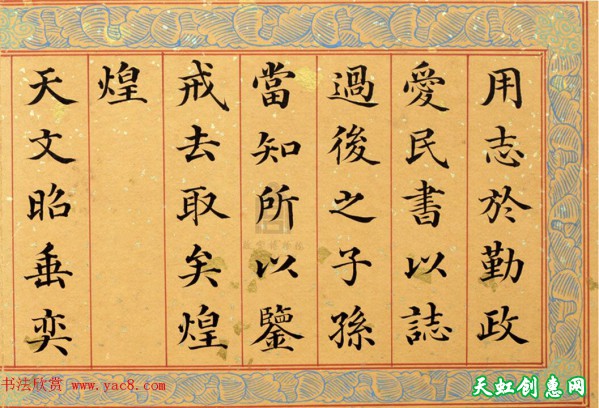 用志於勤政
愛民書以誌
過後之子孫
當知所以鑒
戒去取矣煌
煌
天文昭垂奕
书法欣赏 www.yac8.com
天虹创惠网